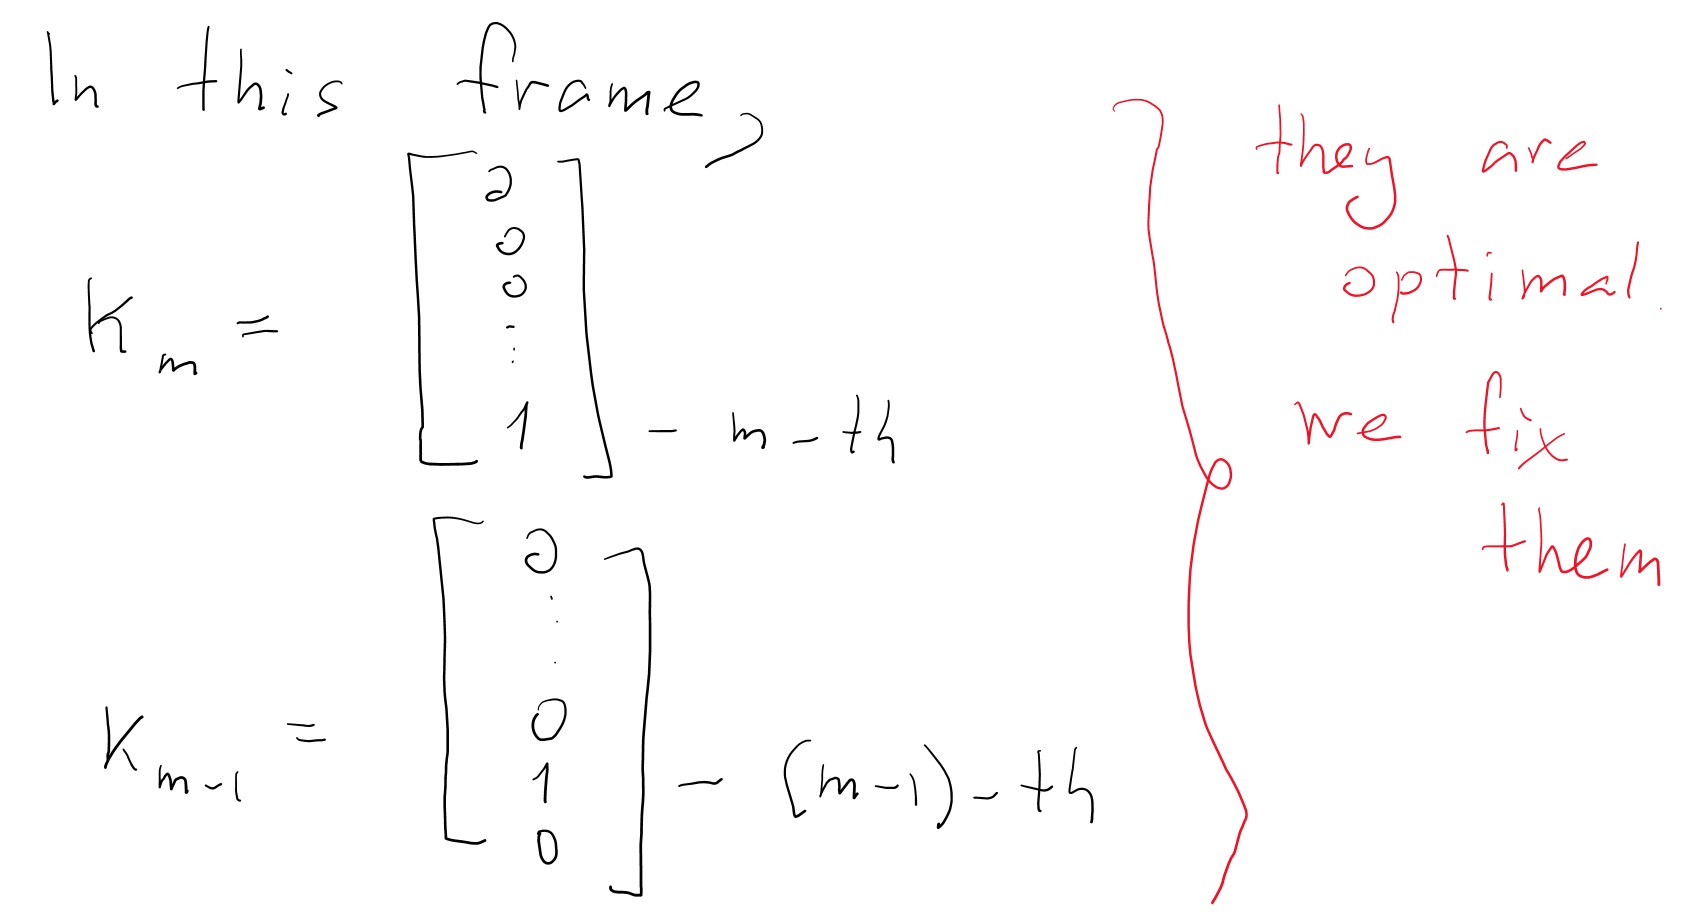 In this frame,
K_m = [0 0 0 ⋮ 1] - m-th
K_{m-1} = [0 ⋮ 0 1 0] - (m-1)-th
they are
optimal.
we fix
them